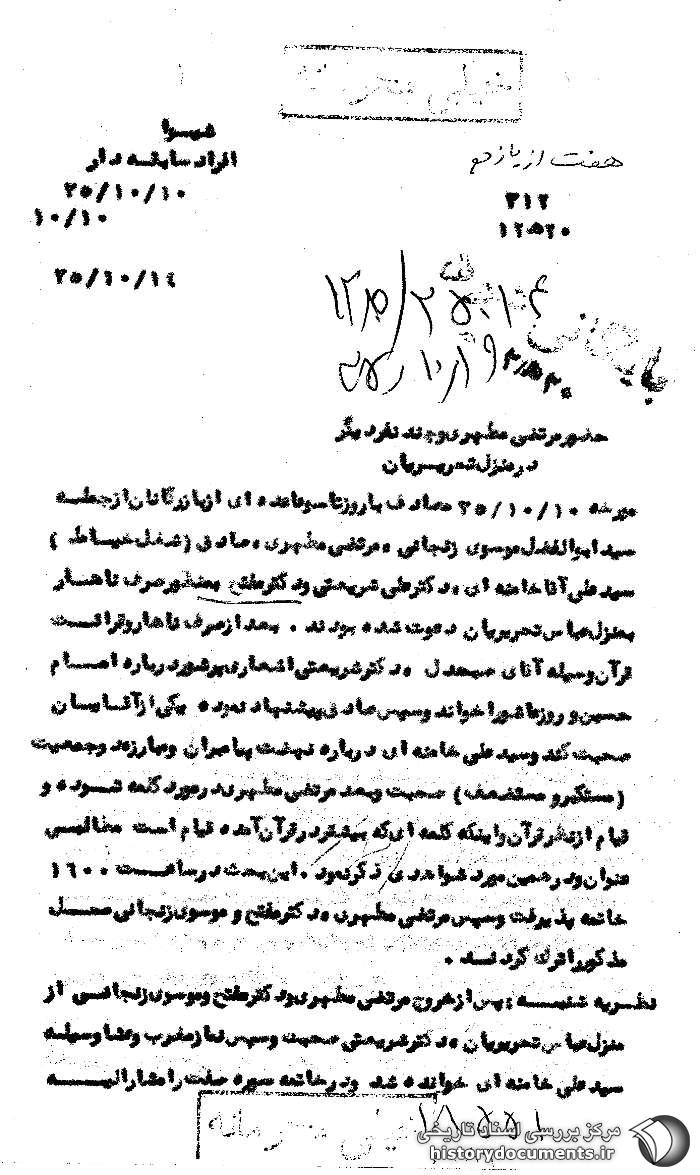 خیلی محرمانه
هفت از یازدهم
شیوا
افراد سابقه دار
۳۱۲
۲۵/۱۰/۱۰
۱۲۵۲۰
۱۰/۱۰
۲۵/۱۰/۱۴
بایگانی
حضور مرتضی مطهری و چند نفر دیگر
در منزل تحریریان
مورخه ۲۵/۱۰/۱۰ مصادف با روز تاسوعا عده ای از بازرگانان از جمله
سید ابوالفضل موسوی زنجانی ، مرتضی مطهری ، صادق (شغل خیاط )
سید علی آقا خامنه ای ، دکتر علی شریعتی و دکتر مفتح بمنظور صرف ناهار
بمنزل عباس تحریریان دعوت شده بودند . بعد از صرف ناهار و قرائت
قرآن وسیله آقای صبحدل ، دکتر شریعتی اشعاری پرشور درباره امام
حسین و روز عاشورا خواند و سپس صادق پیشنهاد نموده یکی از آقایان
صحبت کند و سید علی خامنه ای درباره نهضت پیامبران و مبارزه دو جمعیت
(مستکبر و مستضعف) صحبت و بعد مرتضی مطهری در مورد کلمه شوده و
قیام از نظر قرآن و اینکه کلمه ای که بیشتر در قرآن آمده قیام است مطالبی
عنوان و در همین مورد شواهدی ذکر نمود . این بحث در ساعت ۱۶۰۰
خاتمه پذیرفت و سپس مرتضی مطهری ، دکتر مفتح و موسوی زنجانی محل
مذکور را ترک کردند .
نظریه شنبه : پس از خروج مرتضی مطهری و دکتر مفتح و موسوی زنجانی از
منزل عباس تحریریان ، دکتر شریعتی صحبت و سپس نماز مغرب و عشا وسیله
سید علی خامنه ای خوانده شد و در خاتمه سوره صف را مشارالیه
خیلی محرمانه
مرکز بررسی اسناد تاریخی
historydocuments.ir